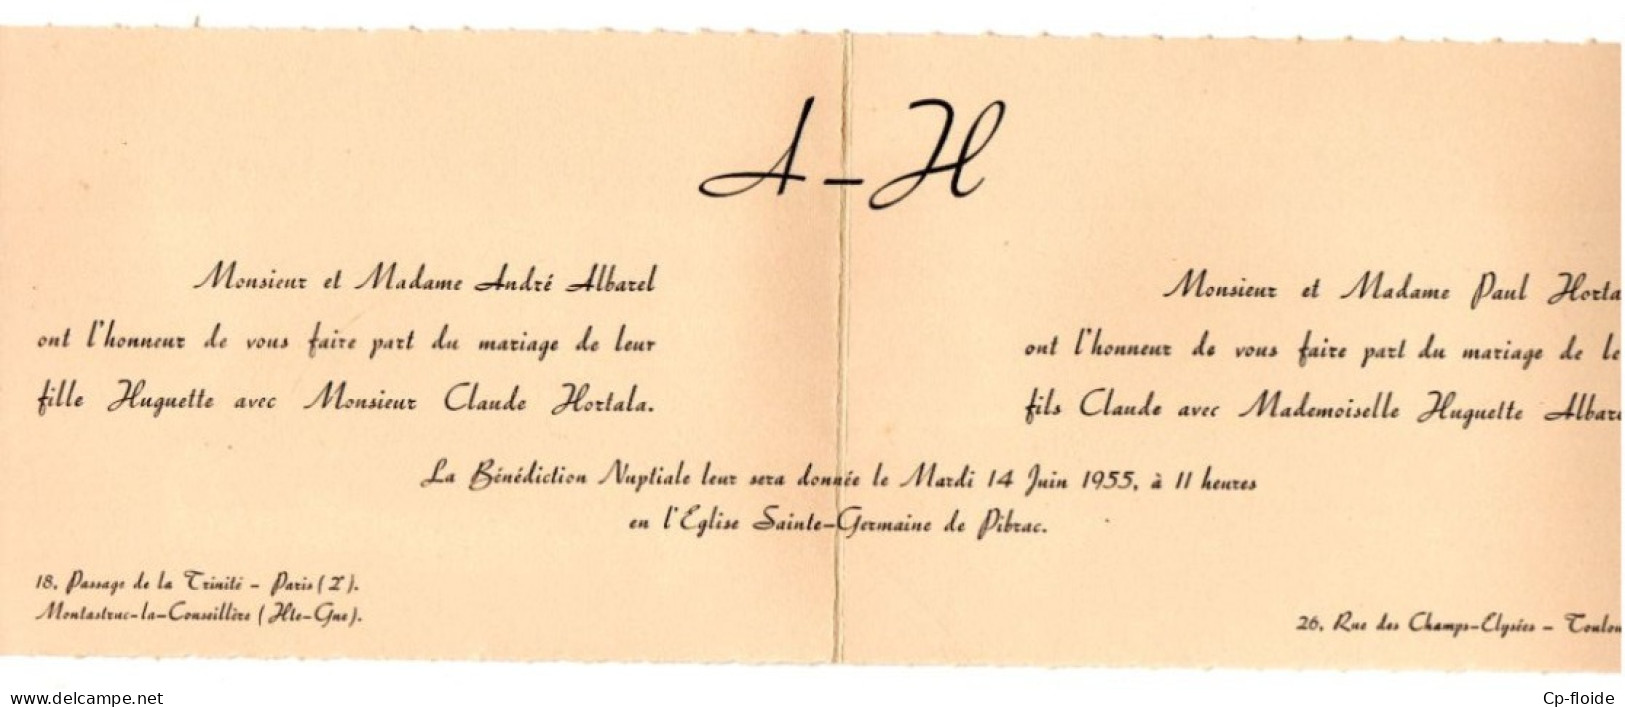 A – H
Monsieur et Madame André Albarel
ont l'honneur de vous faire part du mariage de leur
fille Huguette avec Monsieur Claude Hortala.
Monsieur et Madame Paul Horta
ont l'honneur de vous faire part du mariage de le
fils Claude avec Mademoiselle Huguette Albar
La Bénédiction Nuptiale leur sera donnée le Mardi 14 Juin 1955, à 11 heures
en l'Eglise Sainte-Germaine de Pibrac.
18, Passage de la Trinité - Paris (2ᵉ).
Montastruc-la-Conseillère (Hte-Gne).
26, Rue des Champs-Elysées - Toulou
www.delcampe.net
Cp-floide